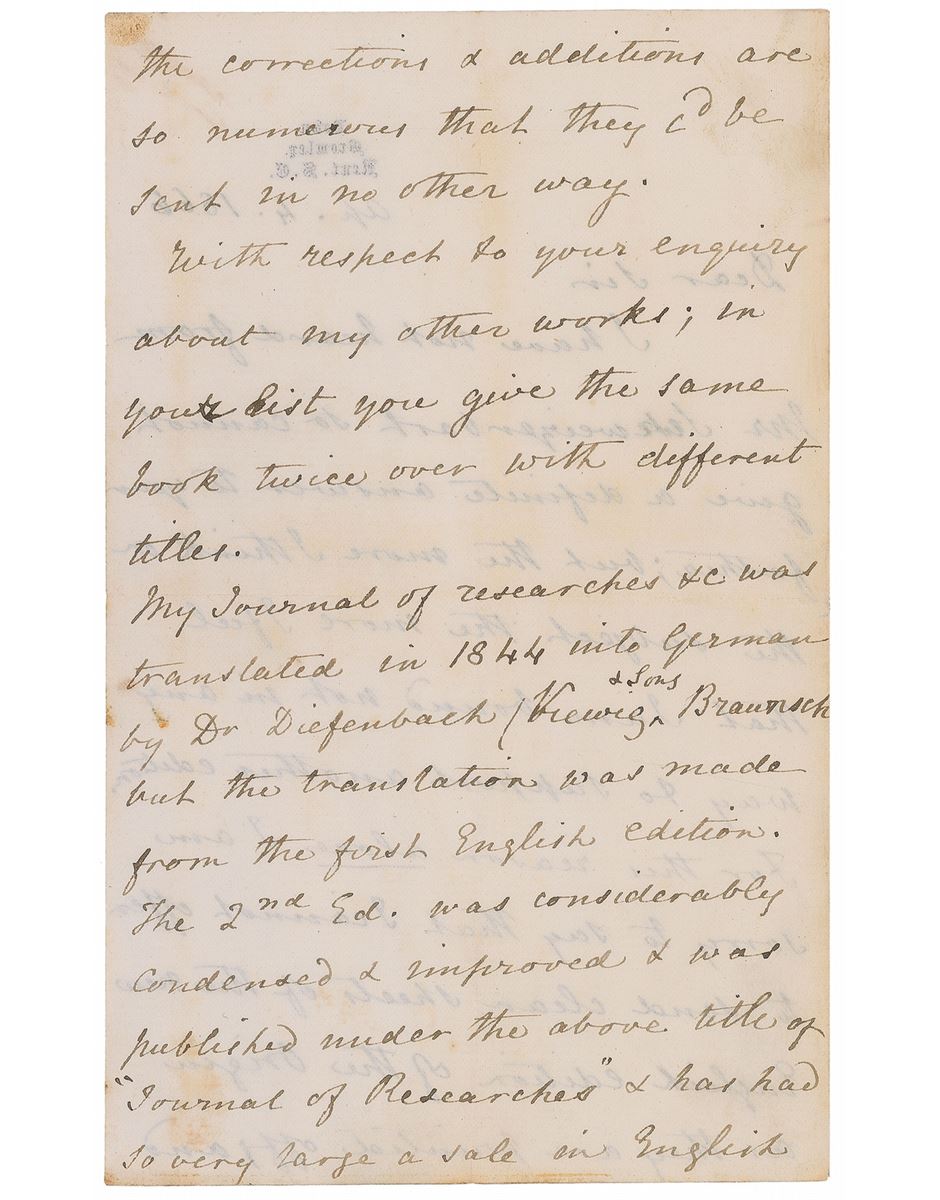 the corrections & additions are
so numerous that they cd be
sent in no other way.
With respect to your enquiry
about my other works; in
your list you give the same
book twice over with different
titles.
My Journal of researches &c was
translated in 1844 into German
& Sons
by Dr Diefenbach (Viewig^ Braunsch
but the translation was made
from the first English edition.
The 2nd Ed. was considerably
condensed & improved & was
published under the above title of
"Journal of Researches" & has had
so very large a sale in English